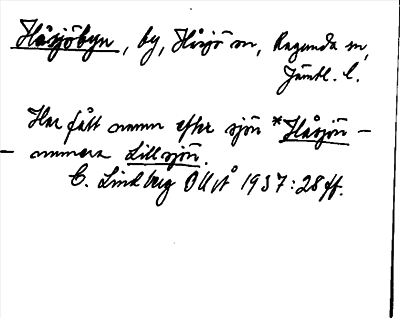 Håsjöbyn, by, Håsjö sn, Ragunda sn,
Jämtl. l.
Har fått namn efter sjön *Håsjön –
– numera Lillsjön.
C. Lindberg OUÅ 1937:28 ff.